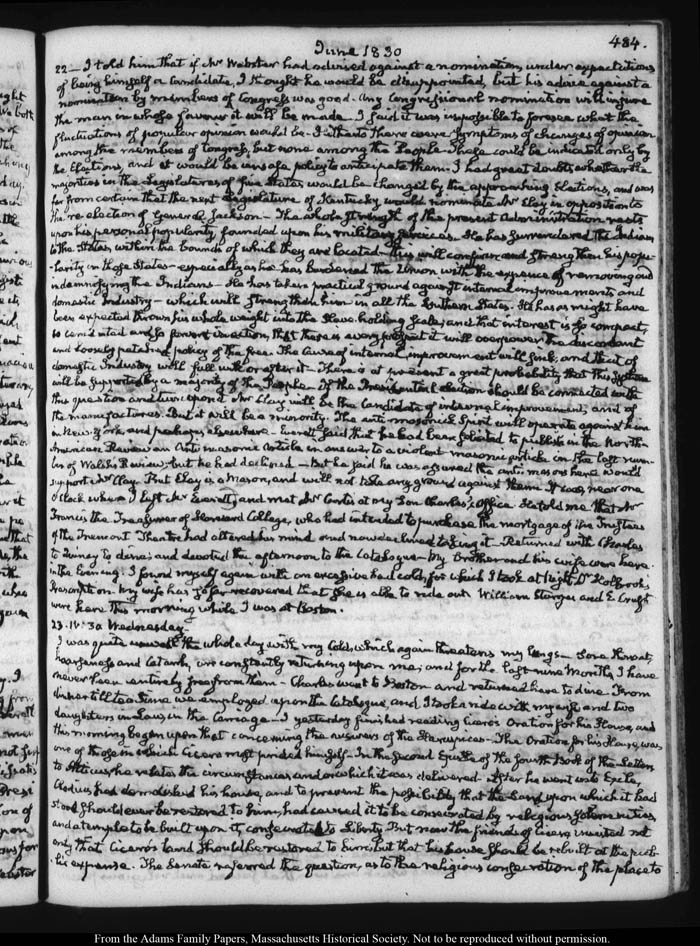 June 1830
484.
22— I told him that if Mr Webster had advised against a nomination, under expectations
of being himself a Candidate, I thought he would be disappointed, but his advice against a
nomination by members of Congress was good. Any Congressional nomination will injure
the man in whose favour it will be made. I said it was impossible to foresee what the
fluctuations of popular opinion would be. Hitherto there were symptoms of changes of opinion
among the members of Congress, but none among the People. These could be indicated only by
the Elections, and it would be unsafe policy to anticipate them. I had great doubts whether the
majorities in the Legislatures of five States would be changed by the approaching Elections, and was
far from certain that the next Legislature of Kentucky would nominate Mr Clay in opposition to
the re-election of General Jackson— The whole strength of the present Administration rests
upon his personal popularity, founded upon his military services. He has surrendered the Indians
to the States, within the bounds of which they are located— This will confirm and strengthen his popu-
-larity in those States— especially as he has burdened the Union with the expence of removing and
indemnifying the Indians— He has taken practical ground against internal improvements and
domestic Industry— which will strengthen him in all the Southern States. He has as might have
been expected thrown his whole weight into the Slave-holding scale; and that interest is so compact,
so cemented and so fervent in action, that there is every prospect it will overpower the discordant
and loosely patched policy of the free. The Cause of internal improvement will sink, and that of
domestic Industry will fall with or after it— There is at present a great probability that this System
will be supported by a majority of the People. If the Presidential election should be connected with
this question and turn upon it Mr Clay will be the Candidate of internal improvement, and of
the manufactures. But it will be a minority. The anti-masonic Spirit will operate against him
in New-York, and perhaps elsewhere— Everett said that he had been solicited to publish in the North-
American Review an Anti masonic Article in answer to a violent masonic article in the last num-
ber of Walsh's Review; but he had declined— But he said he was assured the anti-masons here would
support Mr Clay. But Clay is a Mason, and will not take any ground against them. It was near one
O'Clock when I left Mr Everett, and met Mr Curtis at my Son Charles's Office. He told me that Mr
Francis the Treasurer of Harvard College, who had intended to purchase the mortgage of the Trustees
of the Tremont Theatre had altered his mind and now declined taking it— Returned with Charles
to Quincy to dine; and devoted the afternoon to the Catalogue— My Brother and his wife were here
in the Evening. I found myself again with an excessive bad cold, for which I took at Night Dr Holbrook's
Prescription. My wife has so far recovered that she is able to ride out. William Sturgis and E. Craft
were here this morning while I was at Boston.
23. Wednesday.
I was quite unwell the whole day with my Cold, which again threatens my lungs— Sore throat,
hoarseness and Catarrh, are constantly returning upon me; and for the last nine Months, I have
never been entirely free from them— Charles went to Boston and returned here to dine. From
dinner till tea time we employed upon the Catalogue, and I took a ride with my wife and two
daughters in Law, in the Carriage— I yesterday finished reading Cicero's Oration for his House, and
this morning began upon that concerning the answers of the Haruspices— The Oration for his House, was
one of those on which Cicero most prided himself— In the second Epistle of the fourth Book of the Letters
to Atticus he relates the circumstances under which it was delivered. After he went into Exile,
Clodius had demolished his house, and to prevent the possibility that the Land upon which it had
stood should ever be restored to him, had caused it to be consecrated by religious solemnities,
and a temple to be built upon it, consecrated to Liberty. But now the friends of Cicero insisted not
only that Cicero's land should be restored to him; but that his house should be rebuilt at the pub-
-lic expense. The Senate referred the question, as to the religious consecration of the place to
From the Adams Family Papers, Massachusetts Historical Society. Not to be reproduced without permission.